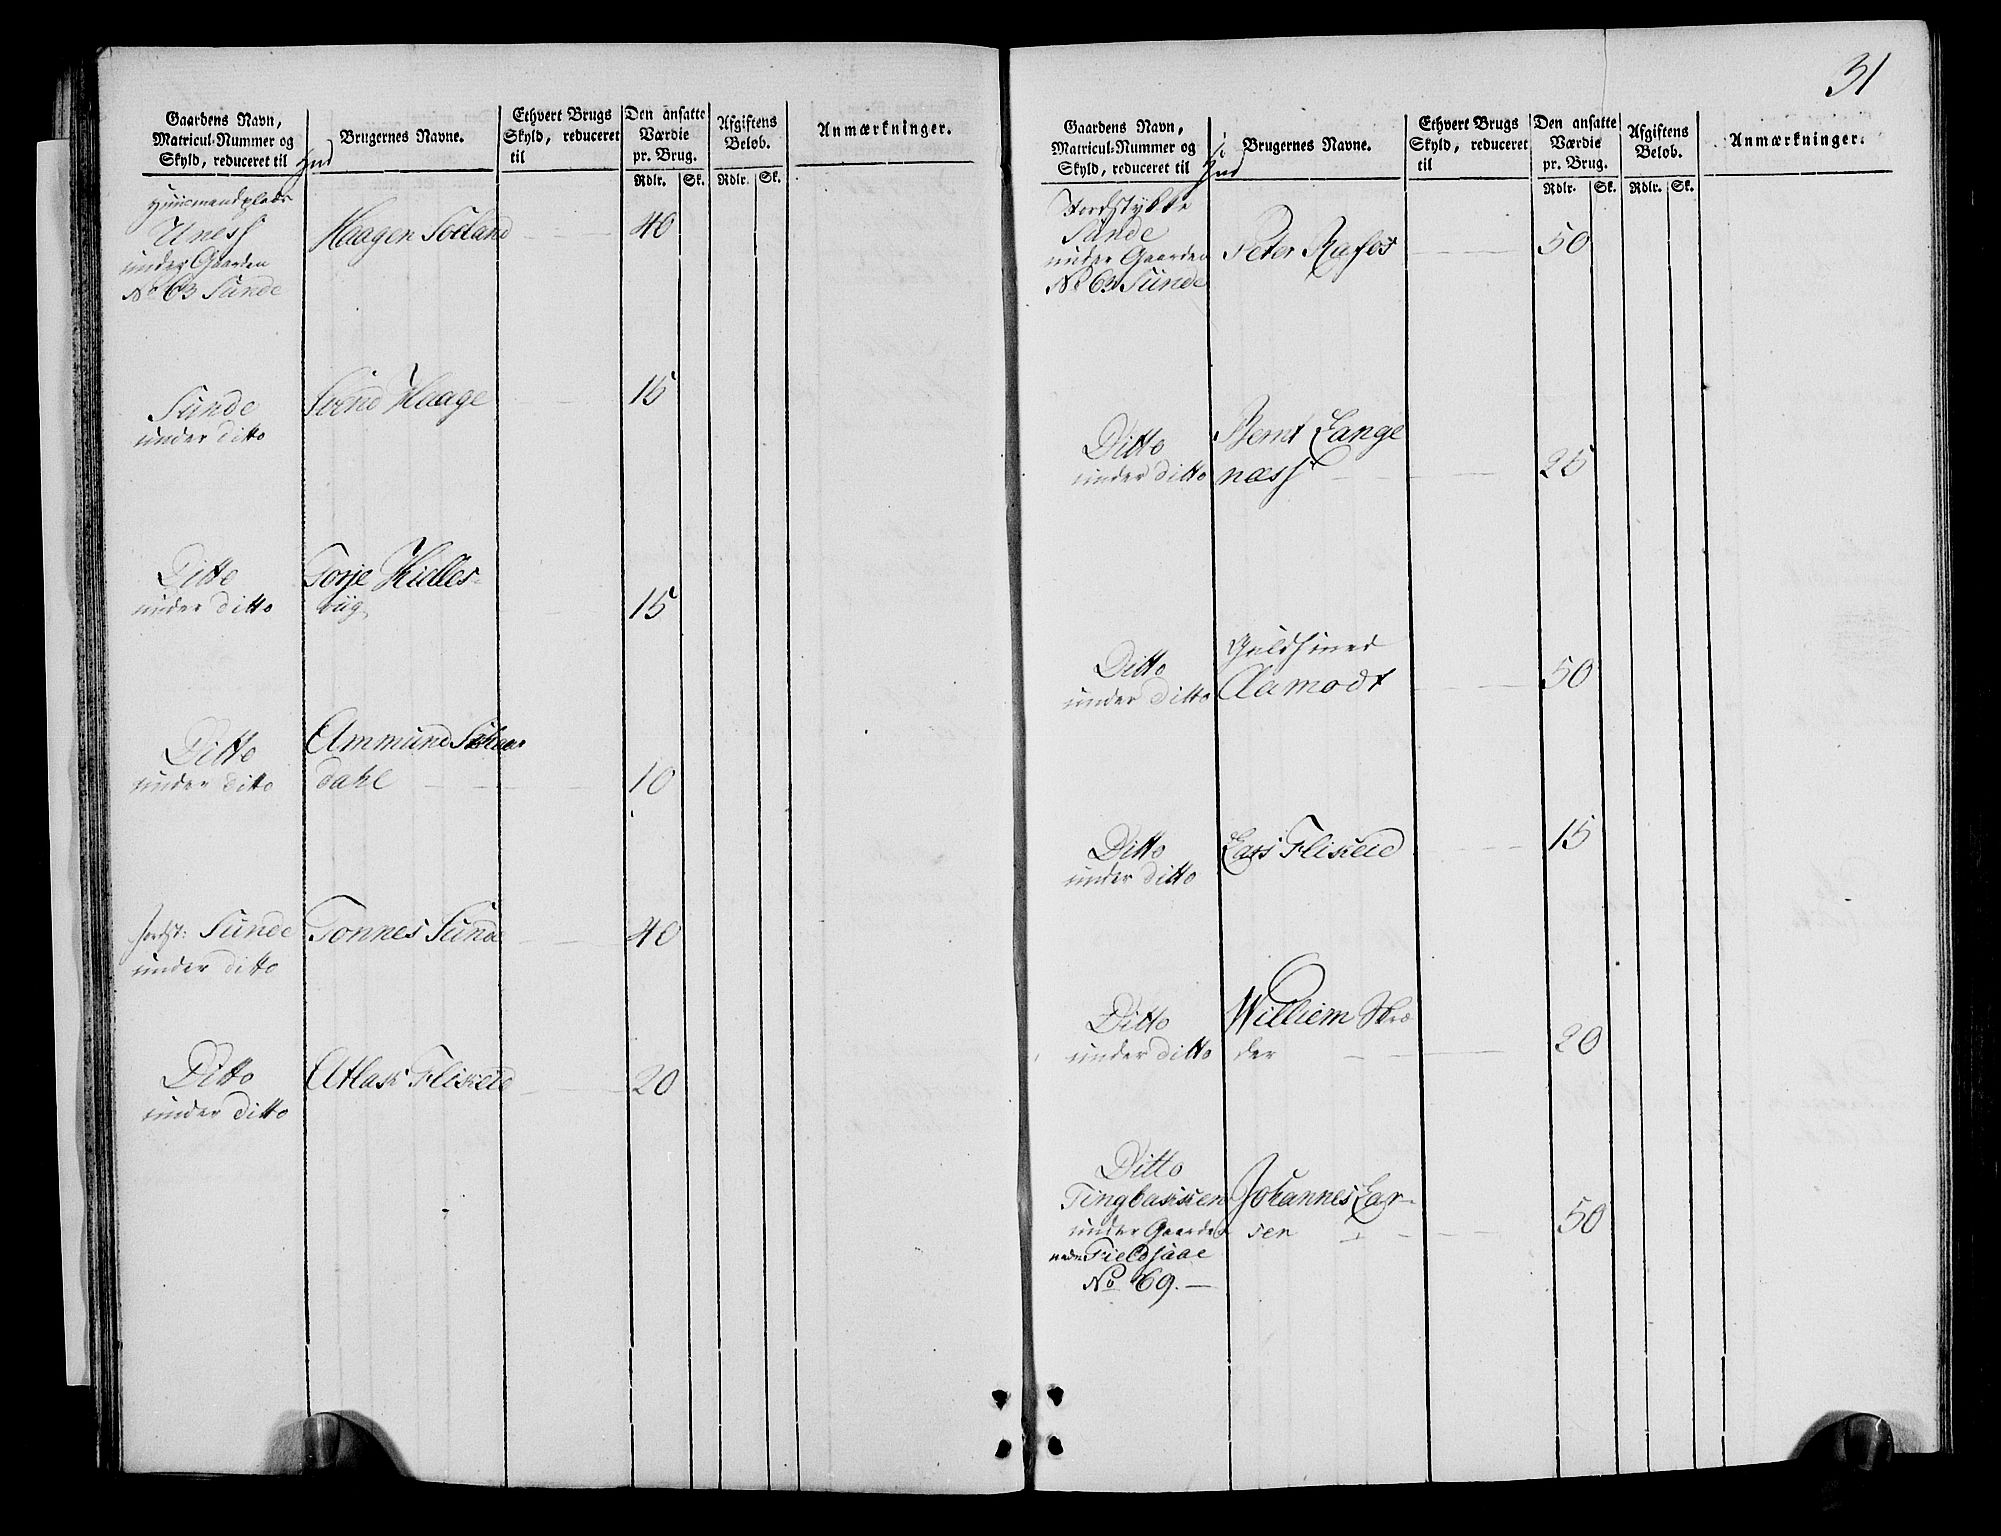 Gaardens Navn,
Matricul-Nummer og
Skyld, reduceret til
Hud
Brugernes Navne.
Ethvert Brugs
Skyld, reduceret
til
Den ansatte
Værdie
pr. Brug.
Rdlr. Sk.
Afgiftens
Beløb.
Rdlr. Sk.
Anmærkninger.
Huusmandplads
Uness Haagen 40
under Gaarden
No 63 Sunde
Sunde Svend Haage 15
under ditto
Ditto Torje Hidles-
under ditto 15
Ditto Ammund
under ditto dahl 10
Jordst: Sunde Tonnes Sunde 40
under ditto
Ditto Atlak Flikeid 20
under ditto
31
Gaardens Navn,
Matricul-Nummer og
Skyld, reduceret til
i
Hud
Brugernes Navne.
Ethvert Brugs
Skyld, reduceret
til
Den ansatte
Værdie
pr. Brug.
Rdlr. Sk.
Afgiftens
Beløb.
Rdlr. Sk.
Anmærkninger.
Jordstykke
Sunde
under Gaarden Peter Rafos 50
No 63 Sunde
Ditto Bernt Lange
under ditto næss 25
Ditto
under ditto Aamodt 50
Ditto Lars Flikeid 15
under ditto
Ditto Williem Skrø
under ditto der 20
Ditto
Tingbakken Johannes Lar-
under Gaarden sen 50
Fieldsaae
No 69.